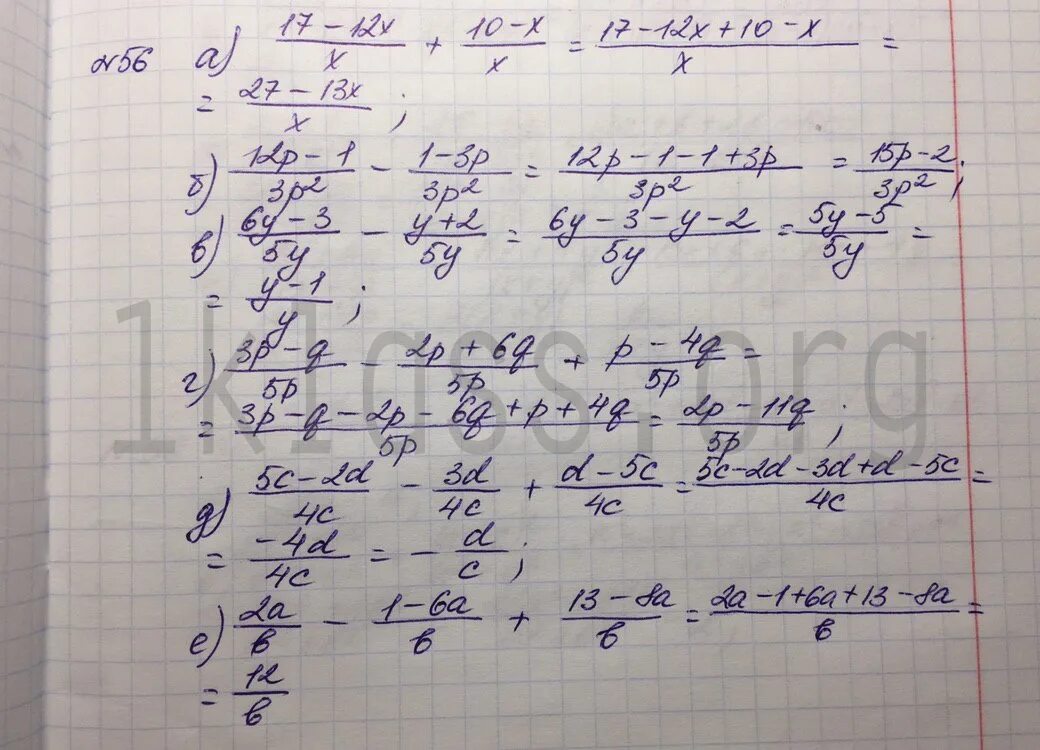 №56 а) (17 − 12x)/x + (10 − x)/x = (17 − 12x + 10 − x)/x =
= (27 − 13x)/x ;
б) (12p − 1)/3p² − (1 − 3p)/3p² = (12p − 1 − 1 + 3p)/3p² = (15p − 2)/3p² ;
в) (6y − 3)/5y − (y + 2)/5y = (6y − 3 − y − 2)/5y = (5y − 5)/5y =
= (y − 1)/y ;
1klass.org
г) (3p − q)/5p − (2p + 6q)/5p + (p − 4q)/5p =
= (3p − q − 2p − 6q + p + 4q)/5p = (2p − 11q)/5p ;
д) (5c − 2d)/4c − 3d/4c + (d − 5c)/4c = (5c − 2d − 3d + d − 5c)/4c =
= (−4d)/4c = − d/c ;
е) 2a/в − (1 − 6a)/в + (13 − 8a)/в = (2a − 1 + 6a + 13 − 8a)/в =
= 12/в